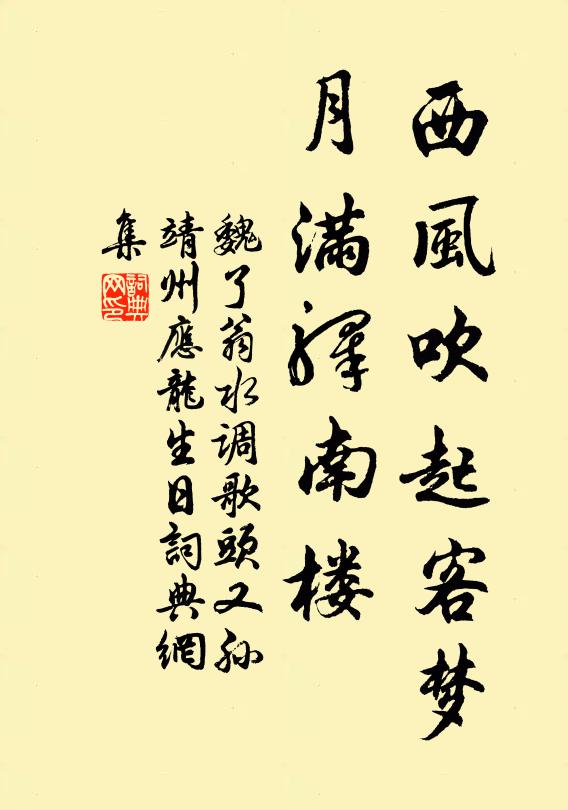 西風吹起客梦
月满驛南楼
魏了翁水调歌頭又孙
靖州應龍生日詞典網
集
詞典
网印